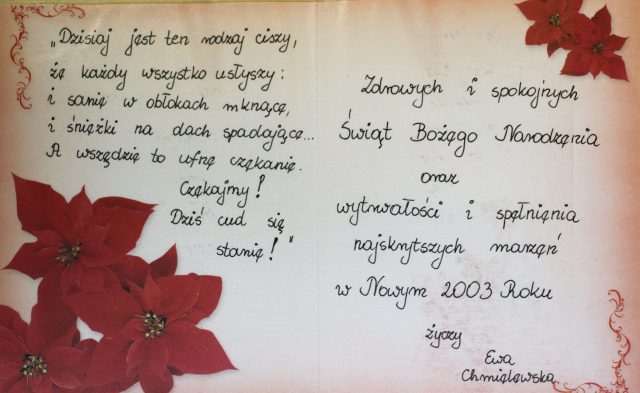 „Dzisiaj jest ten rodzaj ciszy,
że każdy wszystko usłyszy:
i sanie w obłokach mknące,
i śnieżki na dach spadające...
A wszędzie to ufne czekanie.
Czekajmy!
Dziś cud się
stanie!"
Zdrowych i spokojnych
Świąt Bożego Narodzenia
oraz
wytrwałości i spełnienia
najskrytszych marzeń
w Nowym 2003 Roku
życzy
Ewa
Chmielewska